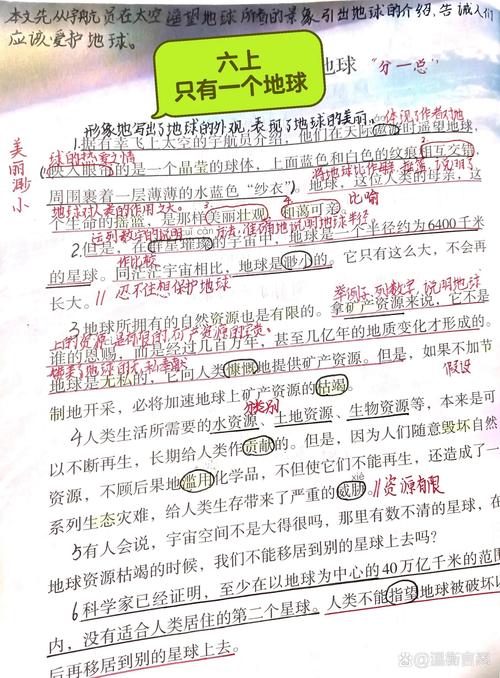 本文先从宇航员在太空遥望地球所看的景象引出地球的介绍,告诫人们
应该爱护地球。
六上
只有一个地球
地球 “分一总”
形象地写出了地球的外观,表现了地球的美丽。体现了作者对地
1.据有幸飞上太空的宇航员介绍,他们在天际遨游时遥望地球,
球的热爱之情
美丽渺小
映入眼帘的是一个晶莹的球体,上面蓝色和白色的纹痕相互交错,
周围裹着一层薄薄的水蓝色“纱衣”。地球,这位人类的母亲,这
地球对人类的作用之大。
比喻
个生命的摇篮,是那样美丽壮观,和蔼可亲。
列数字
准确地说明地球半径
2.但是,在群星璀璨的宇宙中,地球是一个半径约为6400千米
作比较
的星球。同茫茫宇宙相比,地球是渺小的。它只有这么大,不会再
长大。
忍不住想保护地球
举例子,列数字,说明地球
3.地球所拥有的自然资源也是有限的。拿矿产资源来说,它不是
谁的恩赐,而是经过几百万年,甚至几亿年的地质变化才形成的。
地球是无私的,它向人类慷慨地提供矿产资源。但是,如果不加节
假设
制地开采,必将加速地球上矿产资源的枯竭。
分类别
4.人类生活所需要的水资源、土地资源、生物资源等,本来是可
以不断再生,长期给人类作贡献的。但是,因为人们随意毁坏自然
资源,不顾后果地滥用化学品,不但使它们不能再生,还造成了一
xié
系列生态灾难,给人类生存带来了严重的威胁。
资源有限
5有人会说,宇宙空间不是大得很吗,那里有数不清的星球,在
地球资源枯竭的时候,我们不能移居到别的星球上去吗?
6科学家已经证明,至少在以地球为中心的40万亿千米的范围
内,没有适合人类居住的第二个星球。人类不能指望地球被破坏以
后再移居到别的星球上去。